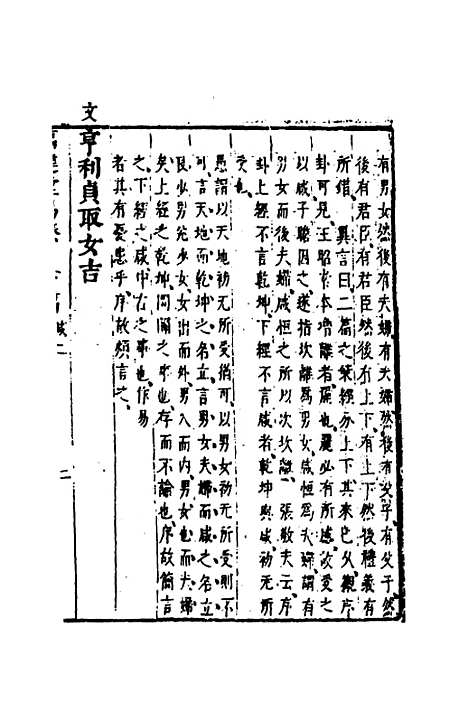 有男女然後有夫婦有夫婦然後有父子有父子然
後有君臣有君臣然後有上下有上下然後禮義有
所錯　巽言曰二篇之策經分上下其來已久觀序
卦可見王昭素本增離者麗也麗必有所感故受之
以咸子瞻因之遂指坎離為男女咸恆為夫婦謂有
男女而後夫婦咸恆之所以次坎離　張敬夫云序
卦上經不言乾坤下經不言咸者乾坤與咸初无所
受也
愚謂以天地初无所受猶可以男女初无所受則不
可言天地而乾坤之名立言男女夫婦而咸之名立
艮少男兌少女女出而外男入而內男女也而夫婦
矣上經之乾坤開闢之事也存而不論也序故簡言
之下經之咸中古之事也作易
者其有憂患乎序故煩言之
文亨利貞取女吉
咸二